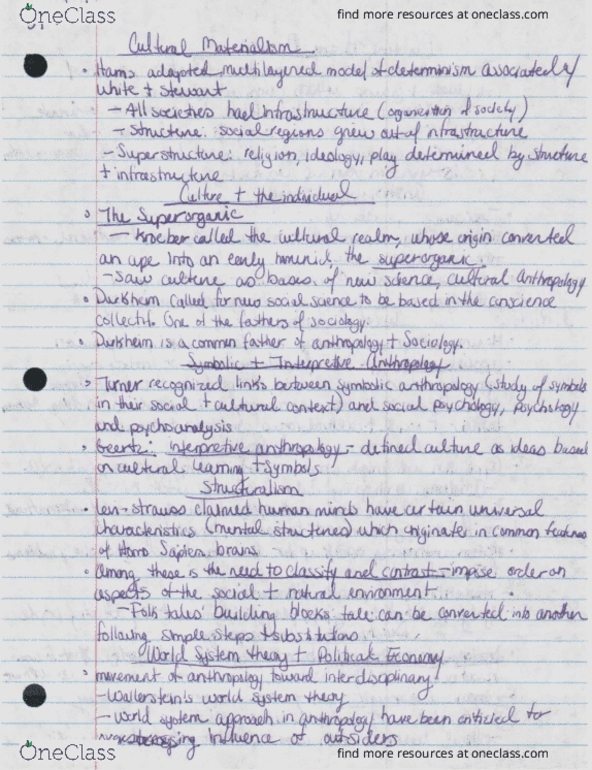 OneClass
find more resources at oneclass.com
Cultural Materialism
• Harris adapted multilayered model of determinism associated w/
White + Stewart
- All societies had infrastructure (organization of society)
- Structure: social regions grew out of infrastructure
- Superstructure: religion, ideology, play determined by structure
+ infrastructure
Culture + the individual
• The Superorganic
- Kroeber called the cultural realm, whose origin converted
an ape into an early hominid, the superorganic
- Saw culture as basis of new science, cultural anthropology
• Durkheim called for new social science to be based in the conscience
collectif. One of the fathers of sociology.
• Durkheim is a common father of anthropology + Sociology.
Symbolic + Interpretive Anthropology
• Turner recognized links between symbolic anthropology (study of symbols
in their social + cultural context) and social psychology, psychology
and psychoanalysis
• Geertz: interpretive anthropology - defined culture as ideas based
on cultural learning + symbols
Structuralism
• Levi-strauss claimed human minds have certain universal
characteristics (mental structures) which originate in common features
of Homo Sapien brains
• Among these is the need to classify and contrast - impose order on
aspects of the social + natural environment.
- Folk tales' building blocks tale can be converted into another
following simple steps + substitutions.
World System theory + Political Economy
• movement of anthropology toward interdisciplinary
- Wallerstein's world system theory
- World system approach in anthropology have been criticized for
influence of outsiders
OneClass
find more resources at oneclass.com